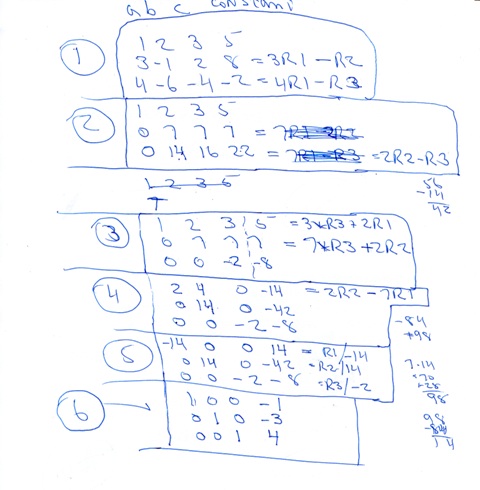 a b c constant
1
1 2 3 5
3 -1 2 8 = 3R1 - R2
4 -6 -4 -2 = 4R1 - R3
2
1 2 3 5
0 7 7 7 = 7R1 - 2R2
0 14 16 22 = 7R1 - R3 = 2R2 - R3
1 2 3 5
56
-14
42
3
1 2 3 5 = 3*R3 + 2R1
0 7 7 7 = 7*R3 + 2R2
0 0 -2 -8
4
2 4 0 -14 = 2R2 - 7R1
0 14 0 -42
0 0 -2 -8
-84
+98
5
-14 0 0 14 = R1/-14
0 14 0 -42 = R2/14
0 0 -2 -8 = R3/-2
7·14
=70
+28
98
6
1 0 0 -1
0 1 0 -3
0 0 1 4
98
-84
14